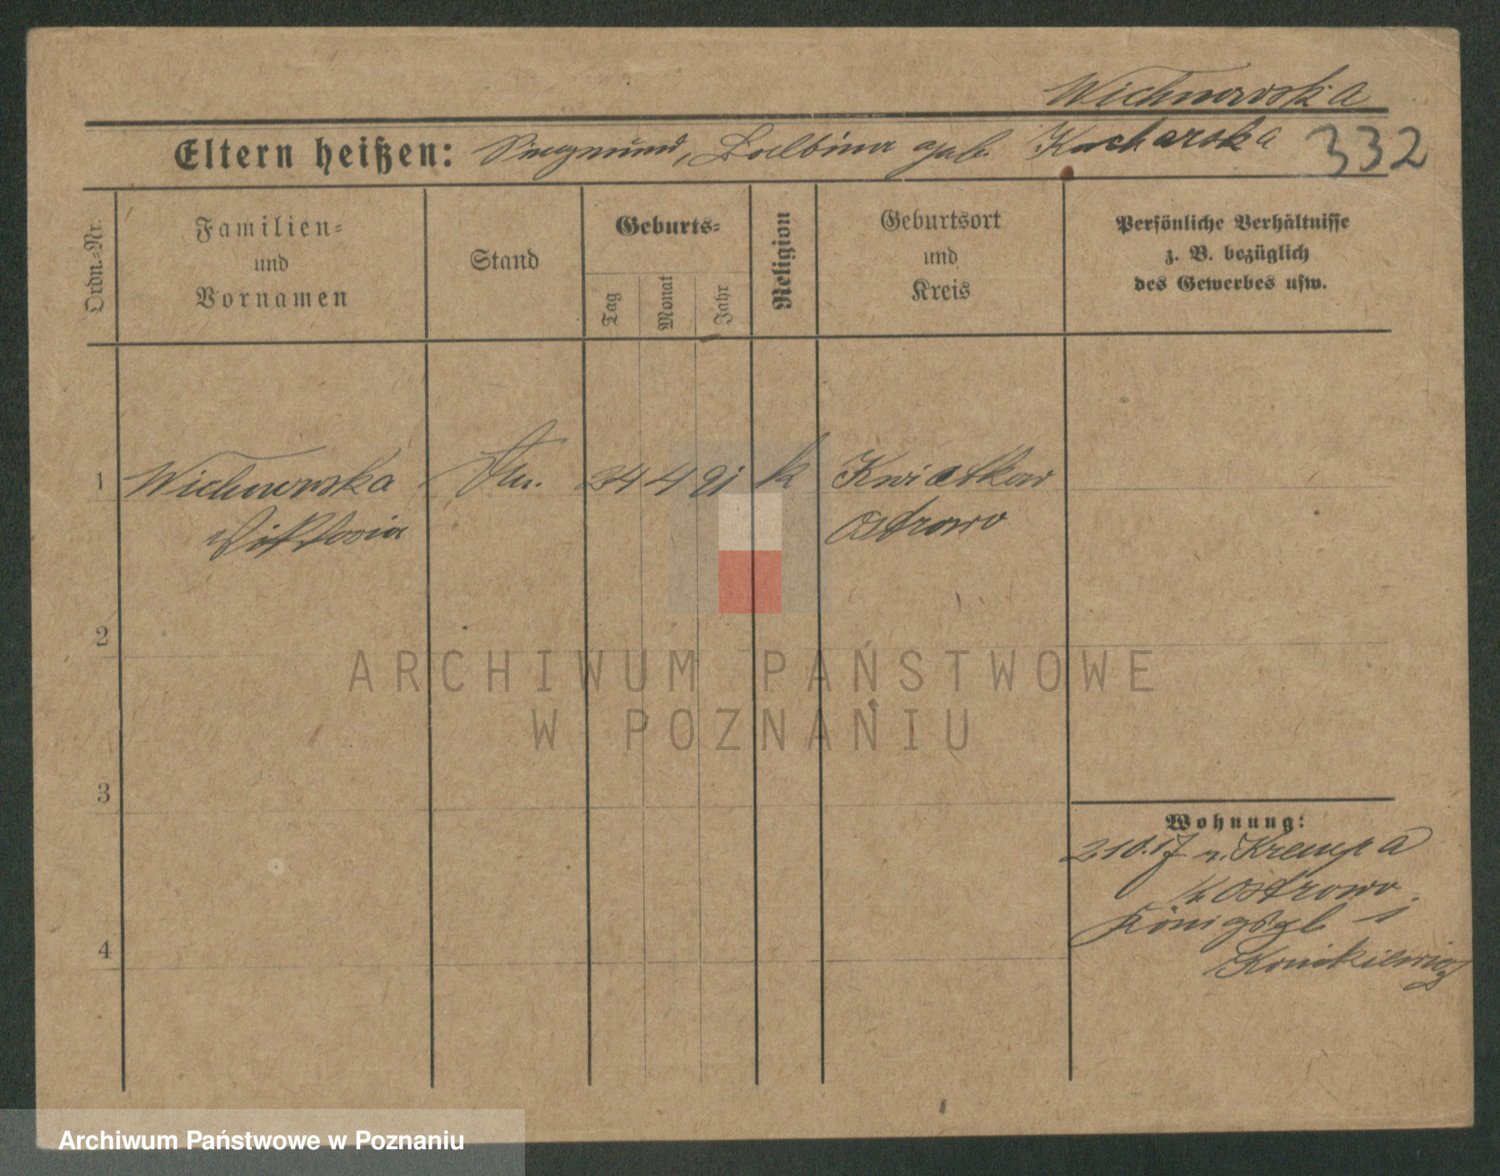 Wichnowska
Eltern heißen: Siegmund, Balbina geb. Kucharska 332
Ordn.-Nr.
Familien-
und
Vornamen
Stand
Geburts-
Tag
Monat
Jahr
Religion
Geburtsort
und
Kreis
Persönliche Verhältnisse
z. B. bezüglich
des Gewerbes usw.
1 Wichnowska 4 91 k Kwiatkow
Viktoria Ostrowo
2
3
4
Wohnung:
2.10.17 n. Krempa
K Ostrowo
Königspl 1
ARCHIWUM PAŃSTWOWE
W POZNANIU
Archiwum Państwowe w Poznaniu